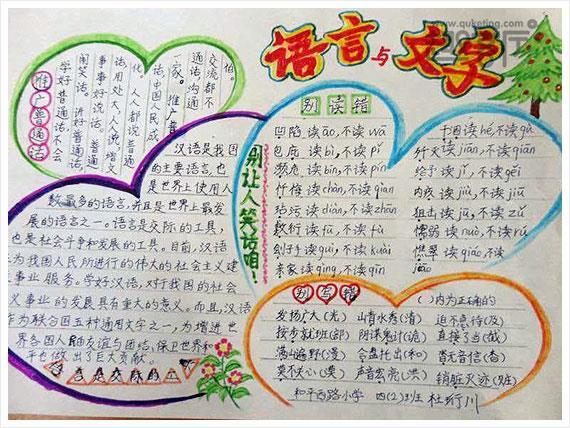 www.quketing.com
语言与文字
推广普通话
学好普通话,不会
闹笑话。讲好普通
事事好说话。普通
话,用处大,人人说,增文
化。人人都说普通
话,中国人民成
一家。推广普
通话,沟通
交流都不
怕。
汉语是我国
的主要语言,也
是世界上使用人
数最多的语言,并且是世界上最发
展的语言之一。语言是交际的工具,
也是社会斗争和发展的工具。目前,汉语
为我国人民所进行的伟大的社会主义建
事业服务。学好汉语,对于我国的社会
义事业的发展具有重大的意义。而且,汉语
作为联合国五种通用文字之一,为增进世
界各国人民的友谊与团结,保卫世界和
平也做出了巨大贡献。
别让人笑话咱!
别读错
凹陷 读āo,不读wā
包庇 读bì,不读pí
濒危 读bīn,不读pín
忏悔 读chàn,不读qiān
玷污 读diàn,不读zhān
敷衍 读fū,不读fù
刽子手 读guì,不读kuài
亲家 读qìng,不读qīn
干涸 读hé,不读gù
歼灭 读jiān,不读qiān
给予 读jǐ,不读gěi
内疚 读jiù,不读jiū
狙击 读jū,不读zǔ
懦弱 读nuò,不读rú
憔悴 读qiáo,不读
jiāo
别写错
( )内为正确的
发扬广大(光)
山青水秀(清)
迫不急待(及)
按步就班(部)
阴谋鬼计(诡)
直接了当(截)
满山遍野(漫)
合盘托出(和)
默不关心(漠)
声音宏亮(洪)
销脏灭迹(赃)
和平西路小学 四(2)班